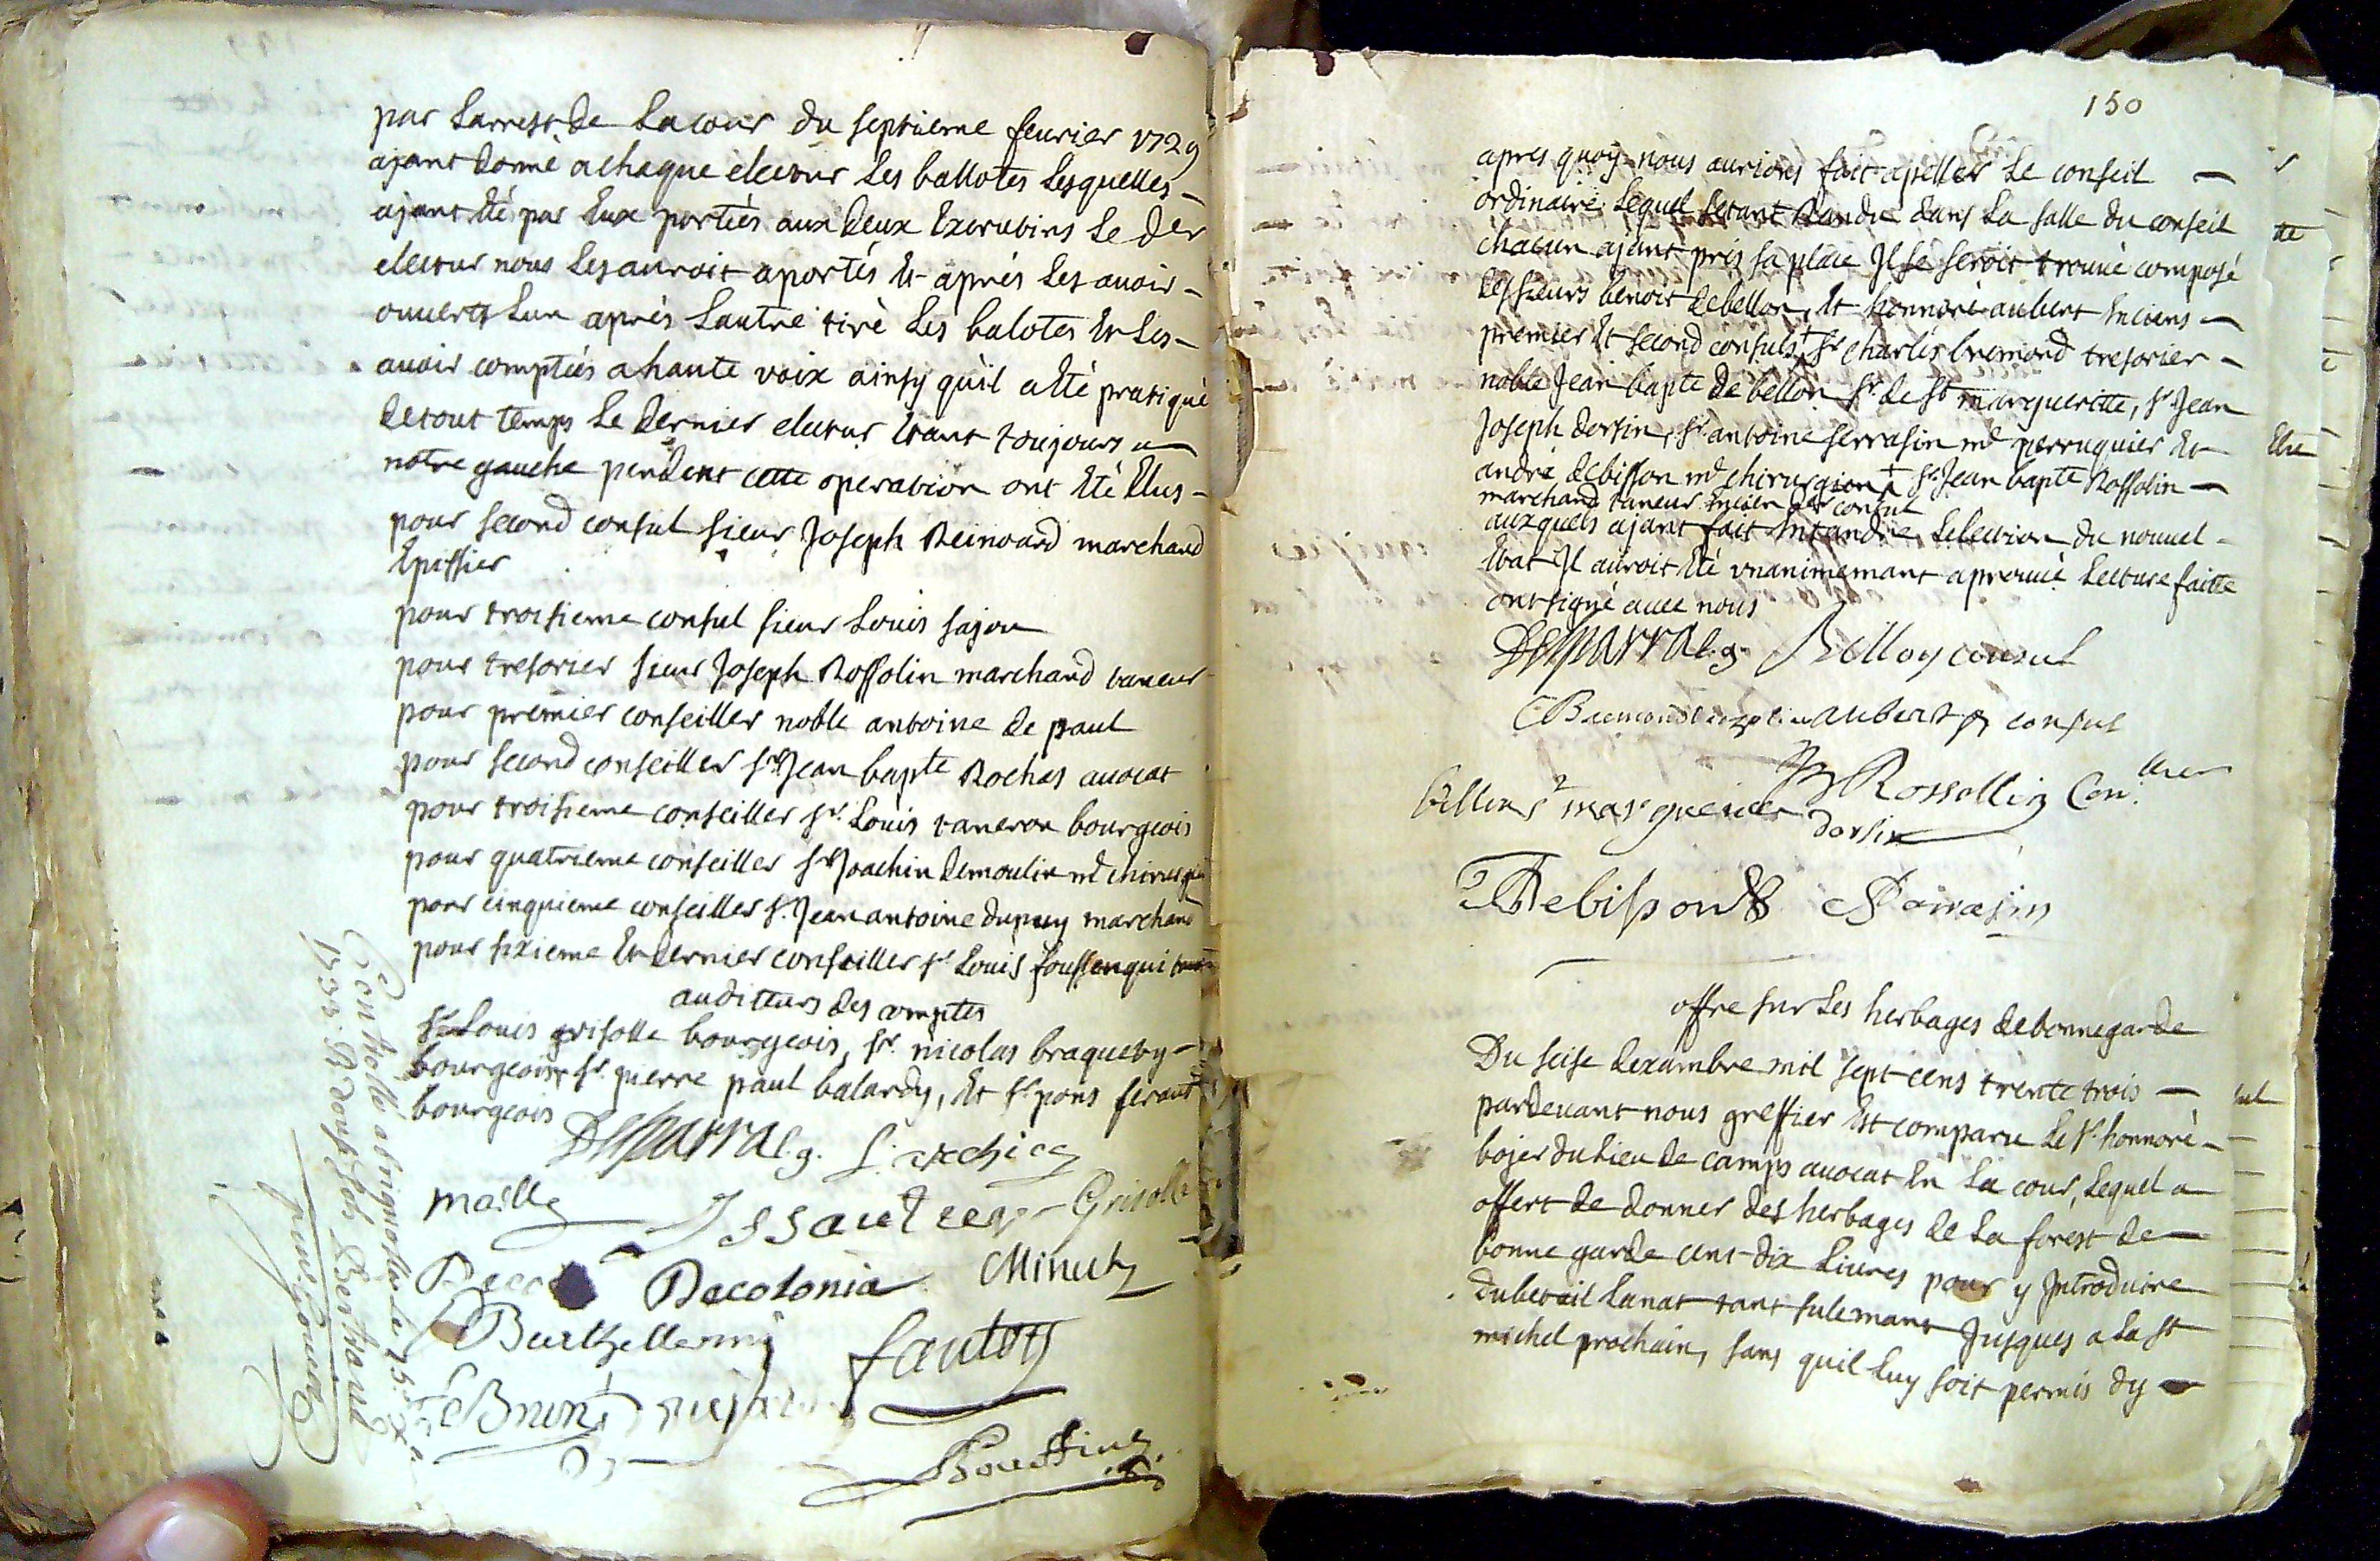 par Larrest de Lacour du septieme feurier 1729
ajant donné a chaque electeur Les ballotes Lesquelles
ajant Eté par Eux portées aux deux Excrutins Le der
electeur nous Les auroit aportés Et aprés Les auoir
ouuerts Lun aprés Lautre tiré Les balotes Et Les
auoir comptées a haute voix ainsy quil a Eté pratiqué
de tout temps Le dernier electeur Etant toujours a
notre gauche pendent cette operation ont Eté Elus
pour second consul sieur Joseph Reinoard marchand
Epissier
pour troisieme consul sieur Louis sajou
pour tresorier sieur Joseph Rossolin marchand taneur
pour premier conseiller noble antoine de paul
pour second conseiller sr Jean bapte Rochas auocat
pour troisieme conseiller sr Louis taneron bourgeois
pour quatrieme conseiller sr Joachin demoulin md chirurgi
pour cinquieme conseiller sr Jean antoine dupuy marchand
pour sixieme Et dernier conseiller sr Louis foussenqui
auditeurs des comptes
sr Louis grisolle bourgeois, sr nicolas braquety
bourgeois sr pierre paul balardy, Et sr pons feraud
bourgeois
Desparra l.g.
maille Issautier Grisolle
Decolonia Minuty
Barthellemy fantoy
Brun
Boussine
Controllé a brignolles le 15
1733 R douse sols Bertrand
150
apres quoy nous aurions fait apeller Le conseil
ordinaire Lequel setant Randu dans La salle du conseil
chacun ajant pris sa place Il se seroit trouué composé
des sieurs benoit debellon, Et honnoré aubert Enciens
premier Et second consuls + sr charles bremond tresorier
noble Jean bapte de bellon sr de ste marguerite, sr Jean
Joseph dorsin, sr antoine serrasin md perruquier Et
andré debisson md chirurgien + sr Jean bapte Rossolin
marchand taneur Encien consul
auxquels ajant fait Entandre Lelection du nouuel
Etat Il auroit Eté vnanimemant aprouué Lecture faitte
ont signé auec nous
Desparra l.g. Bellon consul
Bremond aubert consul
JB Rossollin Con.ller
bellon marguerite dorsin
Debisson Sarrasin
offre sur Les herbages de bonnegarde
Du seise dexambre mil sept cens trente trois
pardeuant nous greffier Est comparu Le sr honnoré
bojer du Lieu de camps auocat En La cour, Lequel a
offert de donner des herbages de La forest de
bonne garde cent dix Liures pour y Introduire
du betail Lanat tant sulemant Jusques a La st
michel prochain, sans quil Luy soit permis dy